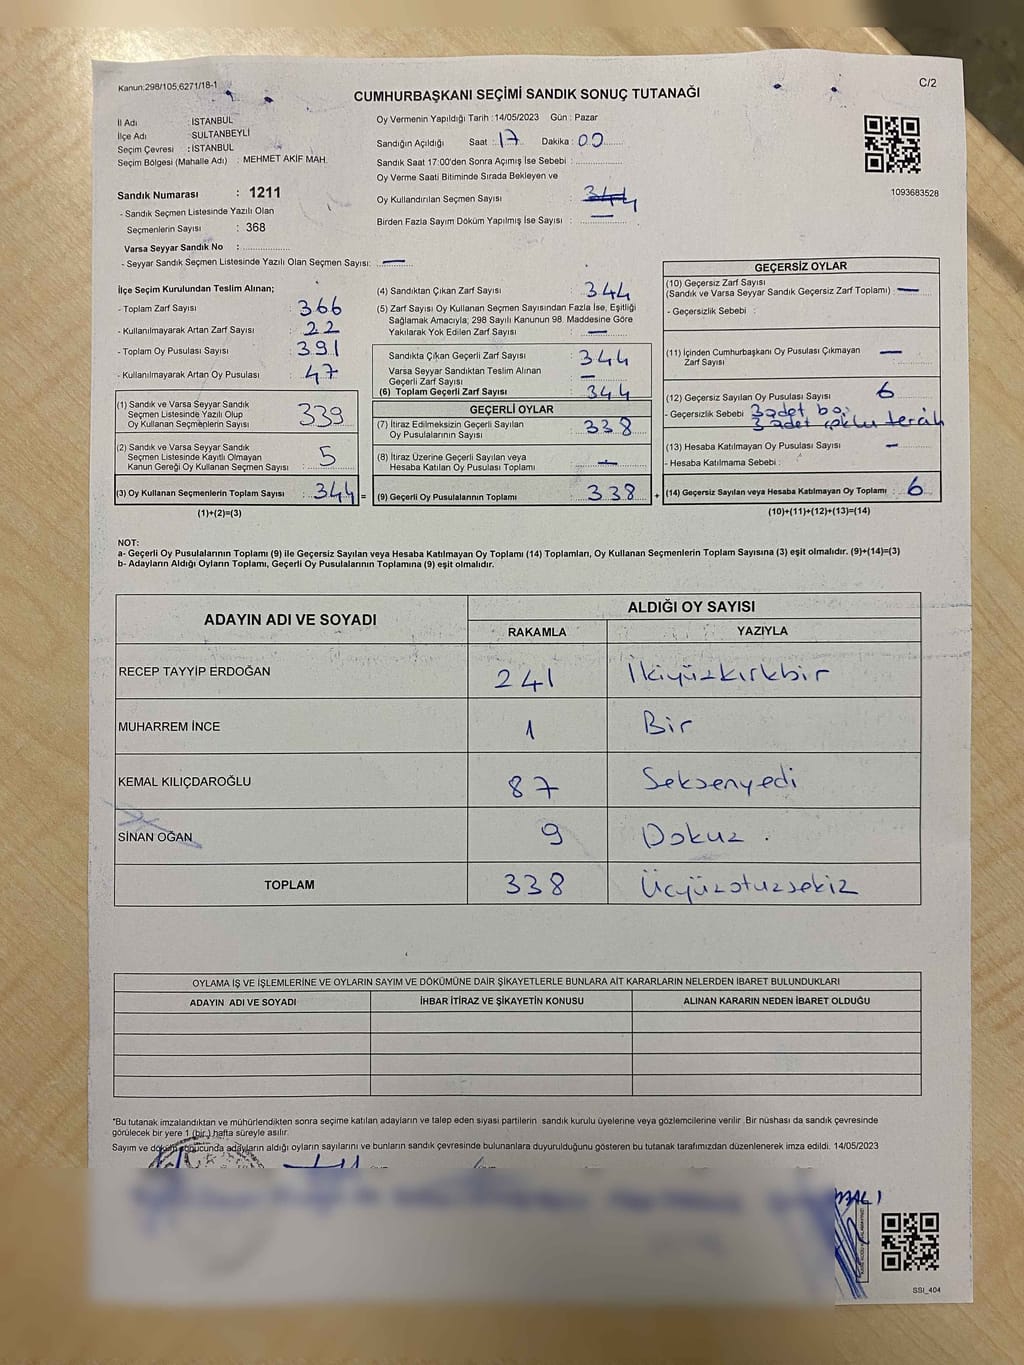 Kanun:298/105,6271/18-1
C/2
CUMHURBAŞKANI SEÇİMİ SANDIK SONUÇ TUTANAĞI
İl Adı : İSTANBUL
İlçe Adı : SULTANBEYLİ
Seçim Çevresi : İSTANBUL
Seçim Bölgesi (Mahalle Adı) : MEHMET AKİF MAH.
Sandık Numarası : 1211
- Sandık Seçmen Listesinde Yazılı Olan
Seçmenlerin Sayısı : 368
Varsa Seyyar Sandık No :
- Seyyar Sandık Seçmen Listesinde Yazılı Olan Seçmen Sayısı: —
Oy Vermenin Yapıldığı Tarih : 14/05/2023 Gün : Pazar
Sandığın Açıldığı Saat : 17 Dakika : 00
Sandık Saat 17:00'den Sonra Açımış İse Sebebi :
Oy Verme Saati Bitiminde Sırada Bekleyen ve
Oy Kullandırılan Seçmen Sayısı : 344
Birden Fazla Sayım Döküm Yapılmış İse Sayısı : —
1093683528
İlçe Seçim Kurulundan Teslim Alınan;
- Toplam Zarf Sayısı : 366
- Kullanılmayarak Artan Zarf Sayısı : 22
- Toplam Oy Pusulası Sayısı : 391
- Kullanılmayarak Artan Oy Pusulası : 47
(1) Sandık ve Varsa Seyyar Sandık
Seçmen Listesinde Yazılı Olup
Oy Kullanan Seçmenlerin Sayısı : 339
(2) Sandık ve Varsa Seyyar Sandık
Seçmen Listesinde Kayıtlı Olmayan
Kanun Gereği Oy Kullanan Seçmen Sayısı : 5
(3) Oy Kullanan Seçmenlerin Toplam Sayısı : 344 =
(1)+(2)=(3)
(4) Sandıktan Çıkan Zarf Sayısı : 344
(5) Zarf Sayısı Oy Kullanan Seçmen Sayısından Fazla İse, Eşitliği
Sağlamak Amacıyla; 298 Sayılı Kanunun 98. Maddesine Göre
Yakılarak Yok Edilen Zarf Sayısı : —
Sandıkta Çıkan Geçerli Zarf Sayısı : 344
Varsa Seyyar Sandıktan Teslim Alınan
Geçerli Zarf Sayısı : —
(6) Toplam Geçerli Zarf Sayısı : 344
GEÇERLİ OYLAR
(7) İtiraz Edilmeksizin Geçerli Sayılan
Oy Pusulalarının Sayısı : 338
(8) İtiraz Üzerine Geçerli Sayılan veya
Hesaba Katılan Oy Pusulası Toplamı : —
(9) Geçerli Oy Pusulalarının Toplamı : 338 +
GEÇERSİZ OYLAR
(10) Geçersiz Zarf Sayısı
(Sandık ve Varsa Seyyar Sandık Geçersiz Zarf Toplamı) : —
- Geçersizlik Sebebi :
(11) İçinden Cumhurbaşkanı Oy Pusulası Çıkmayan
Zarf Sayısı : —
(12) Geçersiz Sayılan Oy Pusulası Sayısı : 6
- Geçersizlik Sebebi 3 adet boş
3 adet çoklu tercih
(13) Hesaba Katılmayan Oy Pusulası Sayısı : —
- Hesaba Katılmama Sebebi :
(14) Geçersiz Sayılan veya Hesaba Katılmayan Oy Toplamı : 6
(10)+(11)+(12)+(13)=(14)
NOT:
a- Geçerli Oy Pusulalarının Toplamı (9) ile Geçersiz Sayılan veya Hesaba Katılmayan Oy Toplamı (14) Toplamları, Oy Kullanan Seçmenlerin Toplam Sayısına (3) eşit olmalıdır. (9)+(14)=(3)
b- Adayların Aldığı Oyların Toplamı, Geçerli Oy Pusulalarının Toplamına (9) eşit olmalıdır.
ADAYIN ADI VE SOYADI
ALDIĞI OY SAYISI
RAKAMLA YAZIYLA
RECEP TAYYİP ERDOĞAN 241 İkiyüzkırkbir
MUHARREM İNCE 1 Bir
KEMAL KILIÇDAROĞLU 87 Seksenyedi
SİNAN OĞAN 9 Dokuz.
TOPLAM 338 Üçyüzotuzsekiz
OYLAMA İŞ VE İŞLEMLERİNE VE OYLARIN SAYIM VE DÖKÜMÜNE DAİR ŞİKAYETLERLE BUNLARA AİT KARARLARIN NELERDEN İBARET BULUNDUKLARI
ADAYIN ADI VE SOYADI İHBAR İTİRAZ VE ŞİKAYETİN KONUSU ALINAN KARARIN NEDEN İBARET OLDUĞU
*Bu tutanak imzalandıktan ve mühürlendikten sonra seçime katılan adayların ve talep eden siyasi partilerin sandık kurulu üyelerine veya gözlemcilerine verilir .Bir nüshası da sandık çevresinde
görülecek bir yere 1 (bir ) hafta süreyle asılır.
Sayım ve döküm sonucunda adayların aldığı oyların sayılarını ve bunların sandık çevresinde bulunanlara duyurulduğunu gösteren bu tutanak tarafımızdan düzenlenerek imza edildi. 14/05/2023
SSI_404